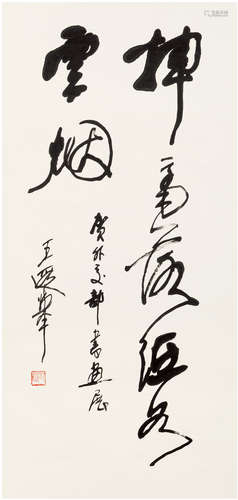 揮毫落紙如
雲烟
賀外交部書畫展
王遐舉